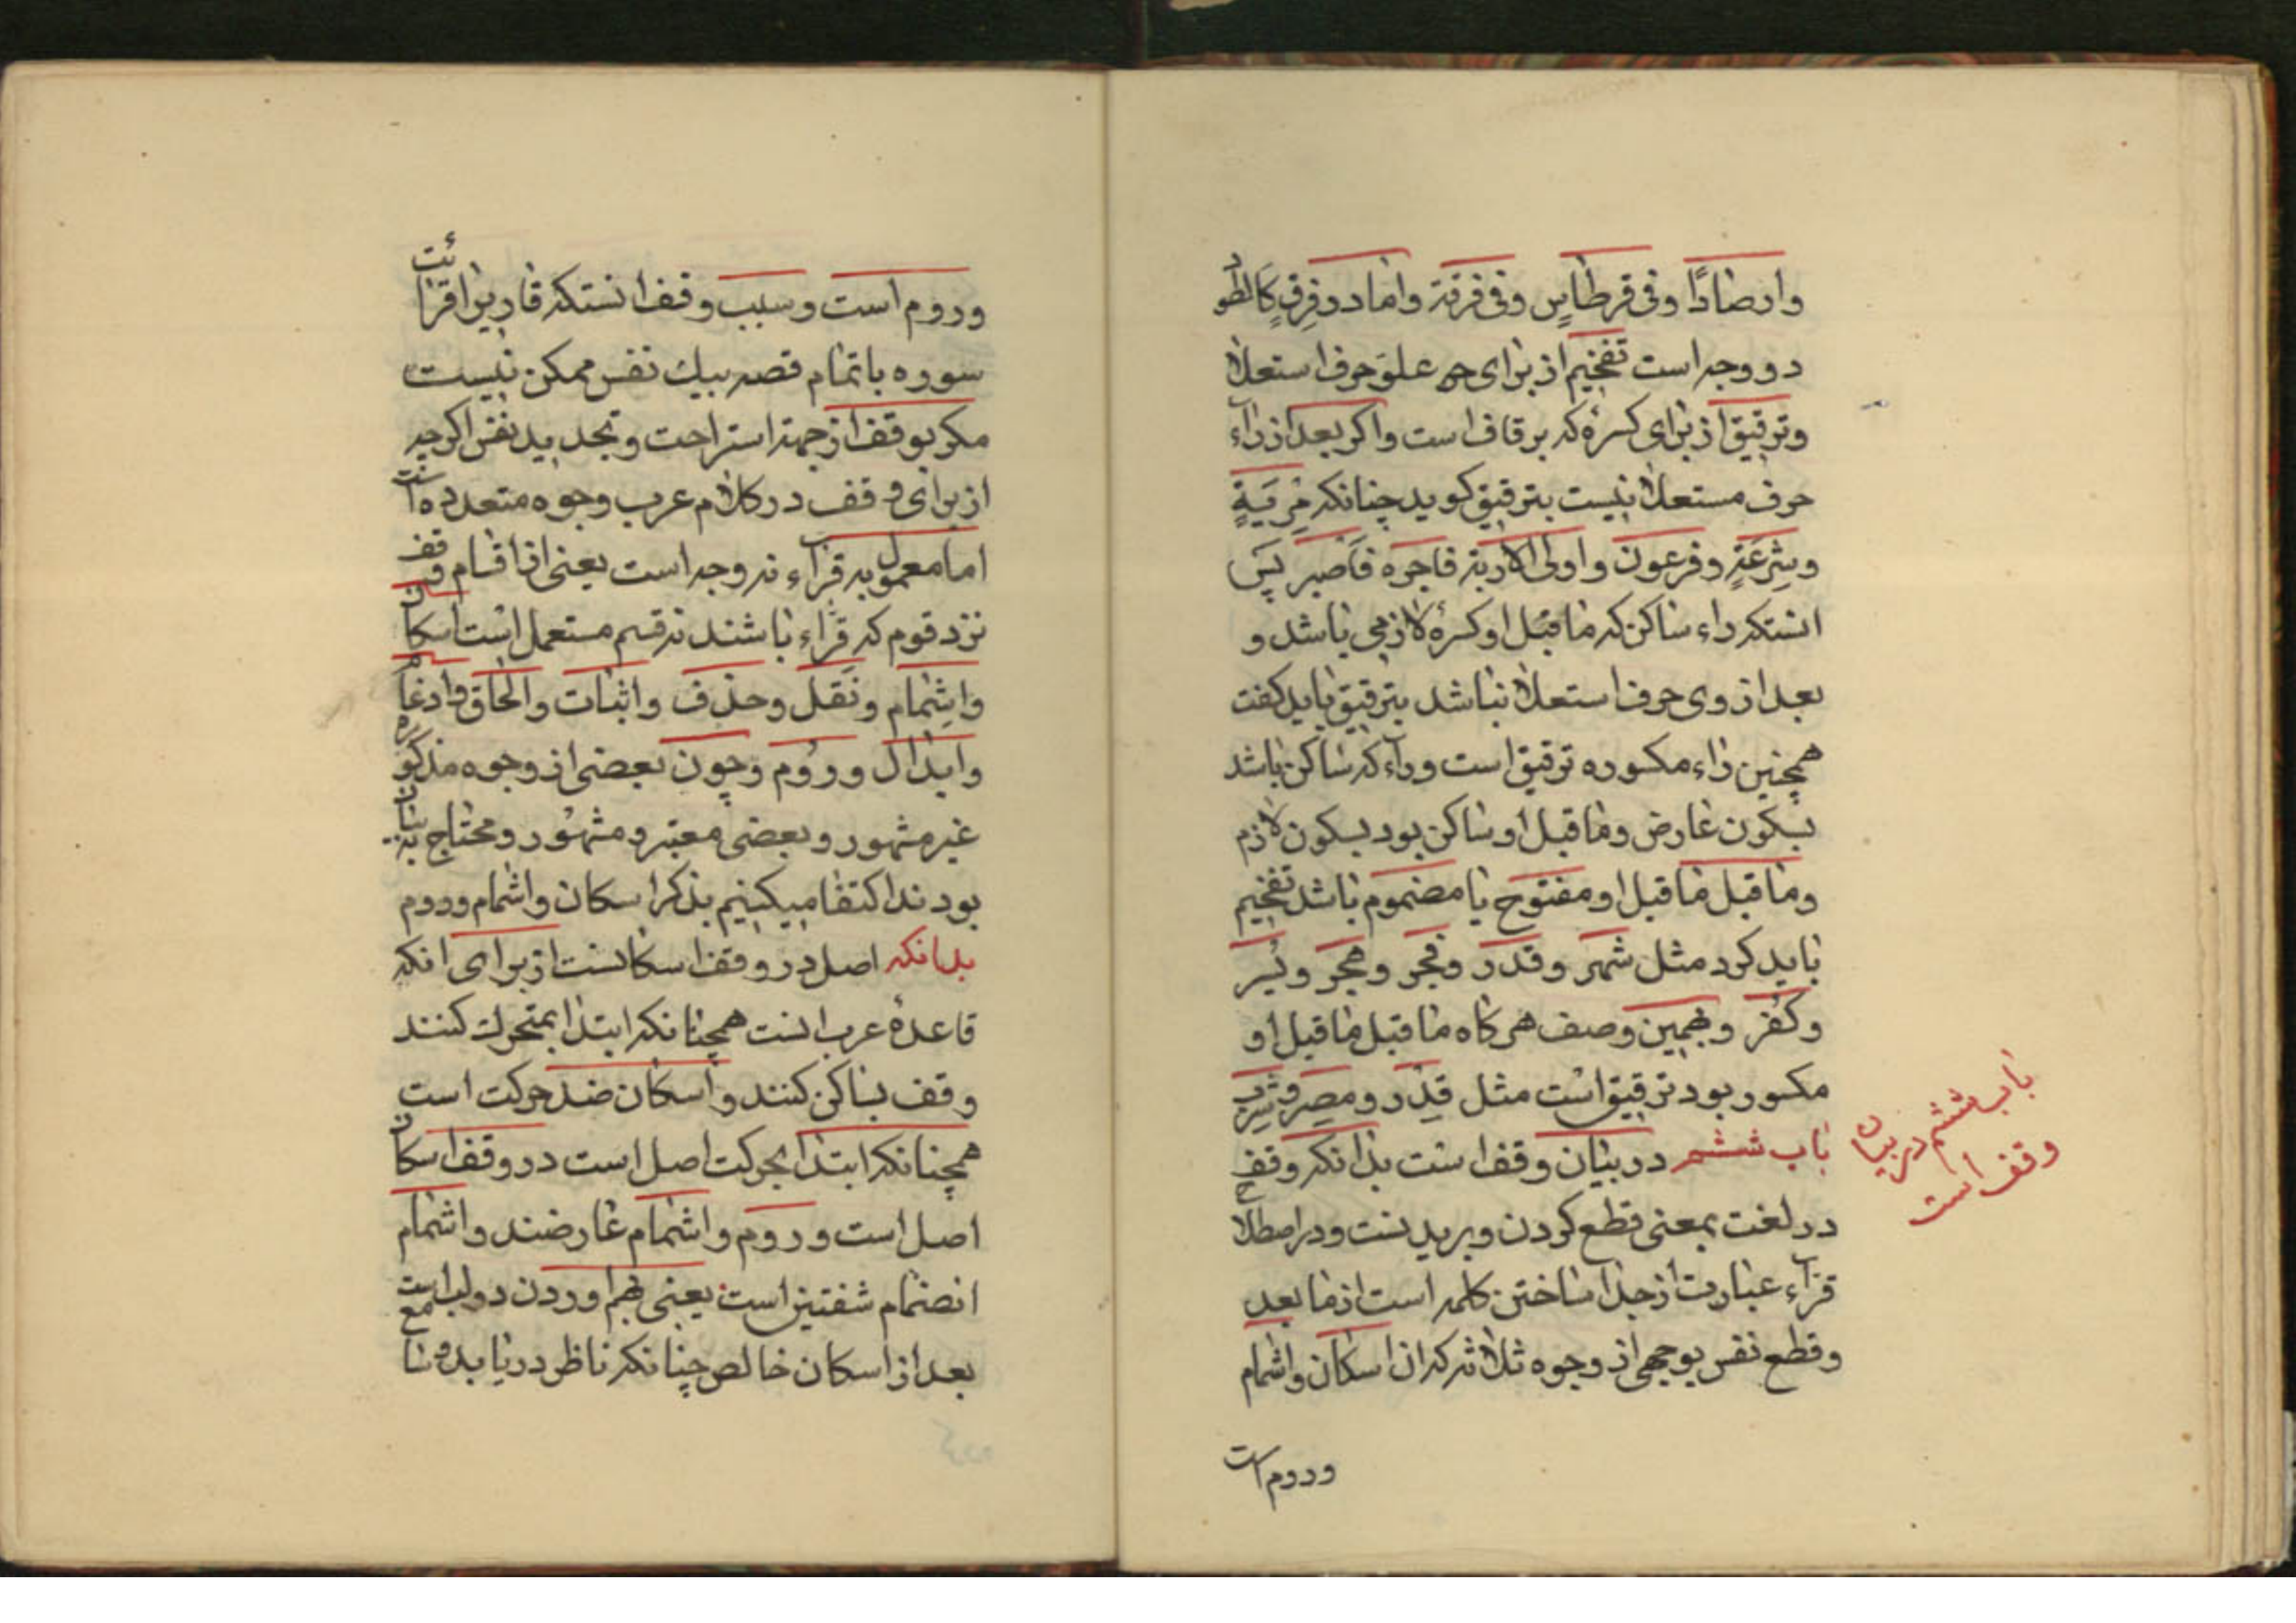 وارصادًا وفی قرطاسٍ وفی فرقة واما در فِرقٍ کالطود
دو وجه است تفخیم از برای علو حرف استعلا
وترقیق از برای کسرهٔ که بر قاف است واکر بعد از راء
حرف مستعلا نیست بترقیق کوید چنانکه مِریَةٍ
وشِرعَةٍ وفرعون واولی الاربة فاجره فَاَصبر پس
انستکه راء ساکن که ماقبل او کسرهٔ لازمی باشد و
بعد از وی حرف استعلا نباشد بترقیق باید کفت
همچنین راء مکسوره ترقیق است وراء که ساکن باشد
بسکون عارض وماقبل او ساکن بود بسکون لازم
وماقبل ماقبل او مفتوح یا مضموم باشد تفخیم
باید کرد مثل شهر وقدر وفجر وهجر ویُسر
وکُفر وبهمین وصف هرکاه ماقبل ماقبل او
مکسور بود ترقیق است مثل قِدر ومصر وشرب
باب ششم در بیان وقف است بدانکه وقف
در لغت بمعنی قطع کردن وبریدنست ودر اصطلاح
قراء عبارت از جدا ساختن کلمه است از مابعد
وقطع نفس بوجهی از وجوه ثلاثه که ان اسکان واشمام
وروم است
باب ششم در بیان
وقف است
وروم است وسبب وقف انستکه قاریرا قرائت
سوره باتمام قصه بیك نفس ممکن نیست
مکر بوقف از جهة استراحت وتجدید نفس اکرچه
از برای وقف در کلام عرب وجوه متعدده است
اما معمول به قراء نه وجه است یعنی از اقسام وقف
نزد قوم که قراء باشند نه قسم مستعمل است اسکان
واشمام ونقل وحذف واثبات والحاق وادغام
وابدال وروم وچون بعضی از وجوه مذکوره
غیر مشهور وبعضی معتبر ومشهور ومحتاج به بیان
بودند اکتفا میکنیم بذکر اسکان واشمام وروم
بدانکه اصل در وقف اسکانست از برای انکه
قاعدهٔ عرب است همچنانکه ابتدا بمتحرك کنند
وقف بساکن کنند واسکان ضد حرکت است
همچنانکه ابتدا بحرکت اصل است در وقف اسکان
اصل است وروم واشمام عارضند واشمام
انضمام شفتین است یعنی بهم اوردن دو لب است
بعد از اسکان خالص چنانکه ناظر دریابد وسامع